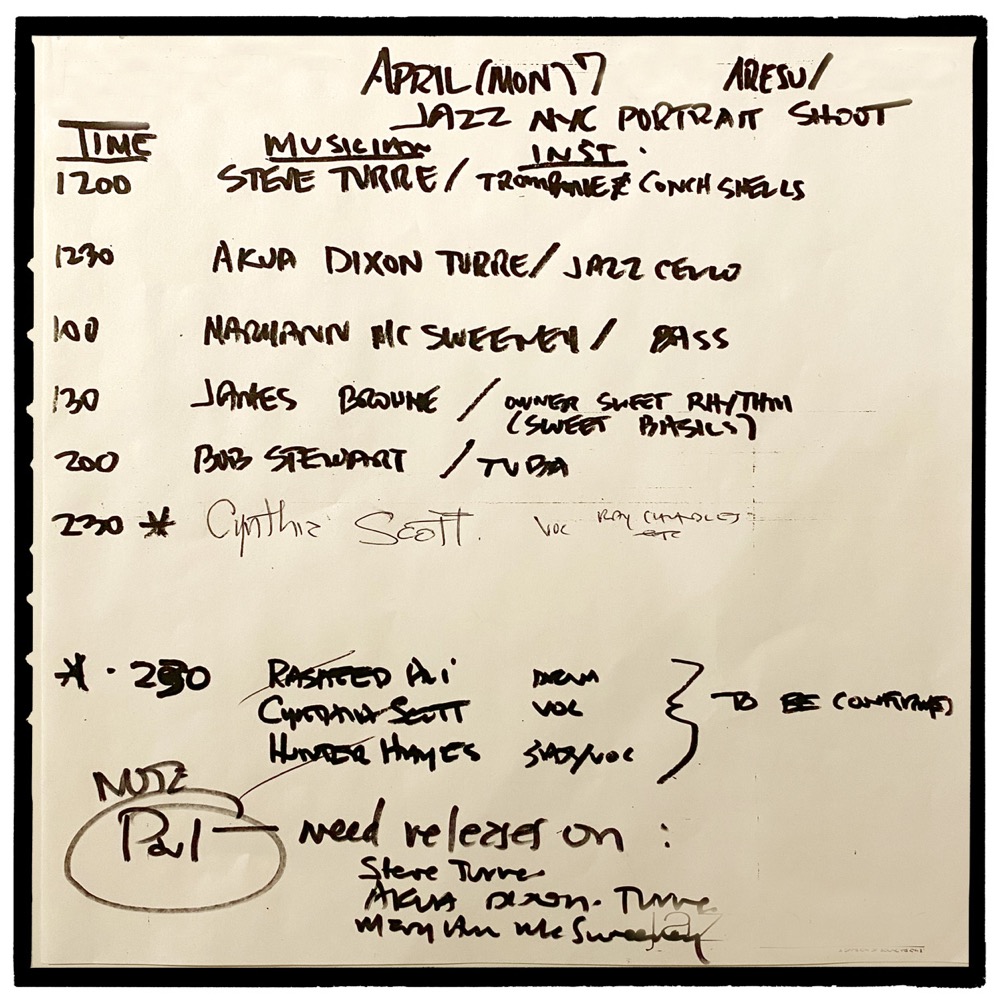 APRIL (MON) 7 ARESU/
JAZZ NYC PORTRAIT SHOOT
TIME MUSICIAN INST.
1200 STEVE TURRE / TROMBONE & CONCH SHELLS
1230 AKUA DIXON TURRE / JAZZ CELLO
100 MARYANN MC SWEENEY / BASS
130 JAMES BROWNE / OWNER SWEET RHYTHM
(SWEET BASILS)
200 BOB STEWART / TUBA
230 * Cynthia Scott. VOC RAY CHARLES
ETC
* · 230 RASHEED ALI DRUM
CYNTHIA SCOTT VOC TO BE CONFIRMED
HUNTER HAYES /VOC
NOTE
Paul — need releases on :
Steve Turre
AKUA DIXON. Turre
Mary Ann Mc Sweeney